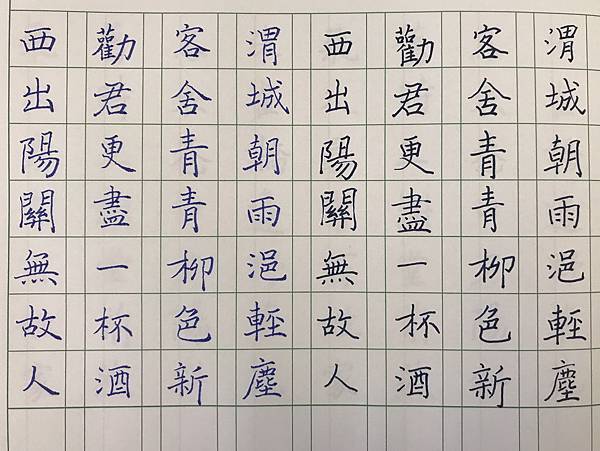 渭城朝雨浥輕塵
客舍青青柳色新
勸君更盡一杯酒
西出陽關無故人
渭城朝雨浥輕塵
客舍青青柳色新
勸君更盡一杯酒
西出陽關無故人